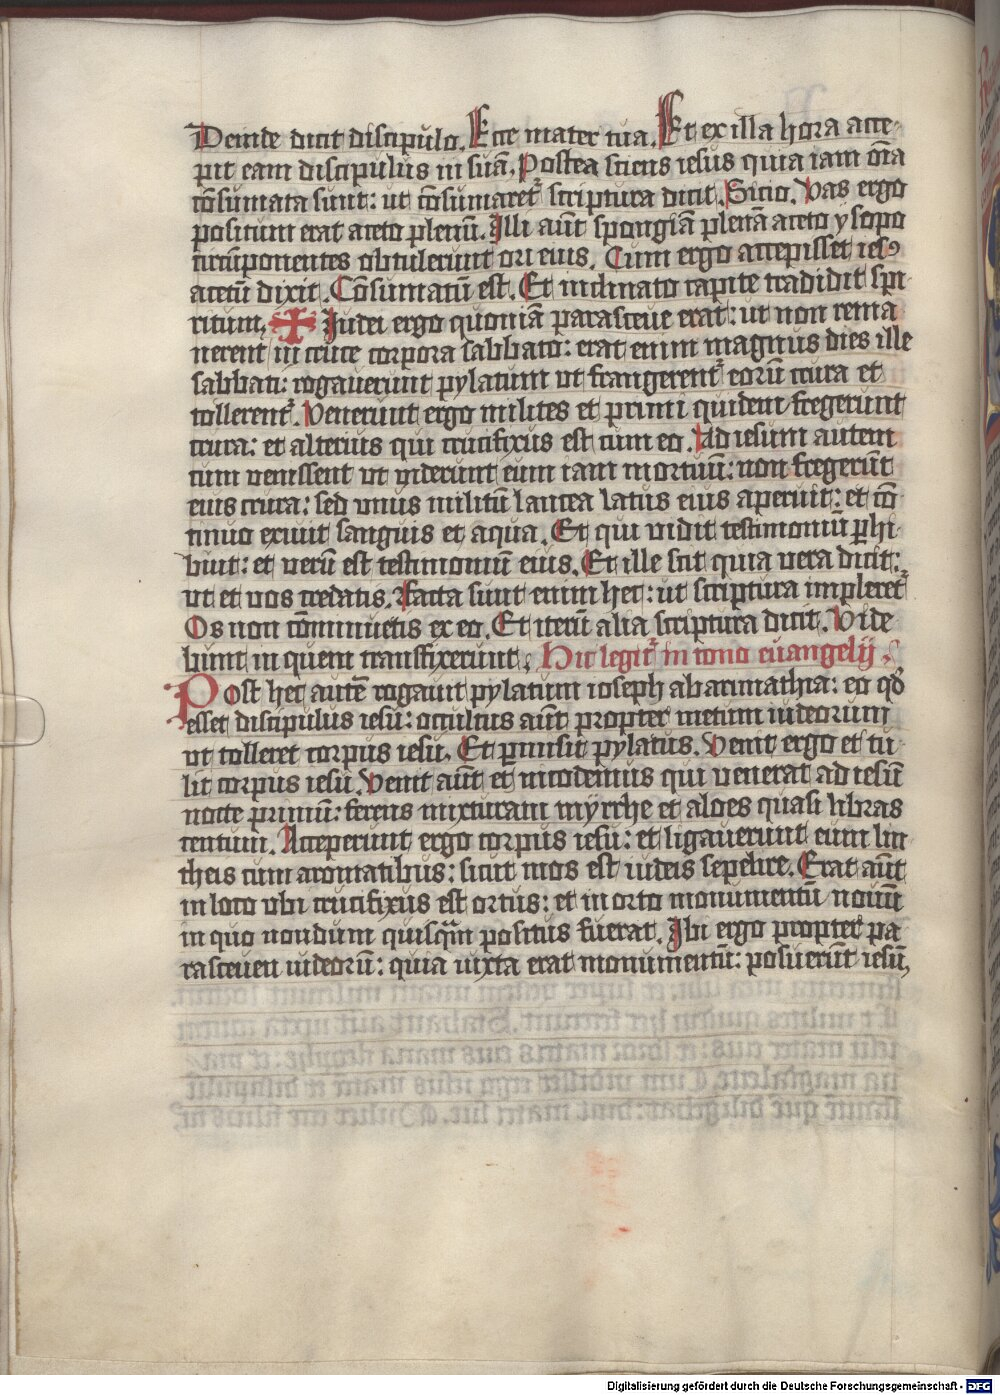 Deinde dicit discipulo. Ecce mater tua. Et ex illa hora acce-
pit eam discipulus in suā. Postea sciens iesus quia iam om̄a
cōsumata sunt: ut cōsumaret᷑ scriptura dicit. Sicio. Vas ergo
positum erat aceto plenū. Illi aūt spongiā plenā aceto ysopo
circūponentes obtulerunt ori eius. Cum ergo accepisset iesꝰ
acetū dixit. Cōsumatū est. Et inclinato capite tradidit spi-
ritum. ✠ Iudei ergo quoniā parasceue erat: ut non rema
nerent in cruce corpora sabbato: erat enim magnus dies ille
sabbati: rogauerunt pylatum vt frangerent᷑ eorū crura et
tollerent᷑. Venerunt ergo milites et primi quidem fregerunt
crura: et alterius qui crucifixus est cum eo. Ad iesum autem
cum venissent vt viderunt eum iam mortuū: non fregerūt
eius crura: sed vnus militū lancea latus eius aperuit: et cō
tinuo exiuit sanguis et aqua. Et qui vidit testimoniū ꝑhi-
buit: et verū est testimoniū eius. Et ille scit quia vera dicit:
vt et vos credatis. Facta sunt enim hec: ut scriptura impleret᷑
Os non cōminuetis ex eo. Et iterū alia scriptura dicit. Vide
bunt in quem transfixerunt. Hic legit᷑ in tono euangelij.
Post hec autē rogauit pylatum ioseph abarimathia: eo qd̄
esset discipulus iesu: occultus aūt propter metum iudeorum
vt tolleret corpus iesu. Et ꝑmisit pylatus. Venit ergo et tu-
lit corpus iesu. Venit aūt et nicodemus qui venerat ad iesū
nocte primū: ferens mixturam myrrhe et aloes quasi libras
centum. Acceperunt ergo corpus iesu: et ligauerunt eum lin
theis cum aromatibus: sicut mos est iudeis sepelire. Erat aūt
in loco vbi crucifixus est ortus: et in orto monumentū nouū
in quo nondum quisq̄ȝ positus fuerat. Ibi ergo propter pa
rasceuen iudeorū: quia iuxta erat monumentū: posuerūt iesū.
Digitalisierung gefördert durch die Deutsche Forschungsgemeinschaft - DFG